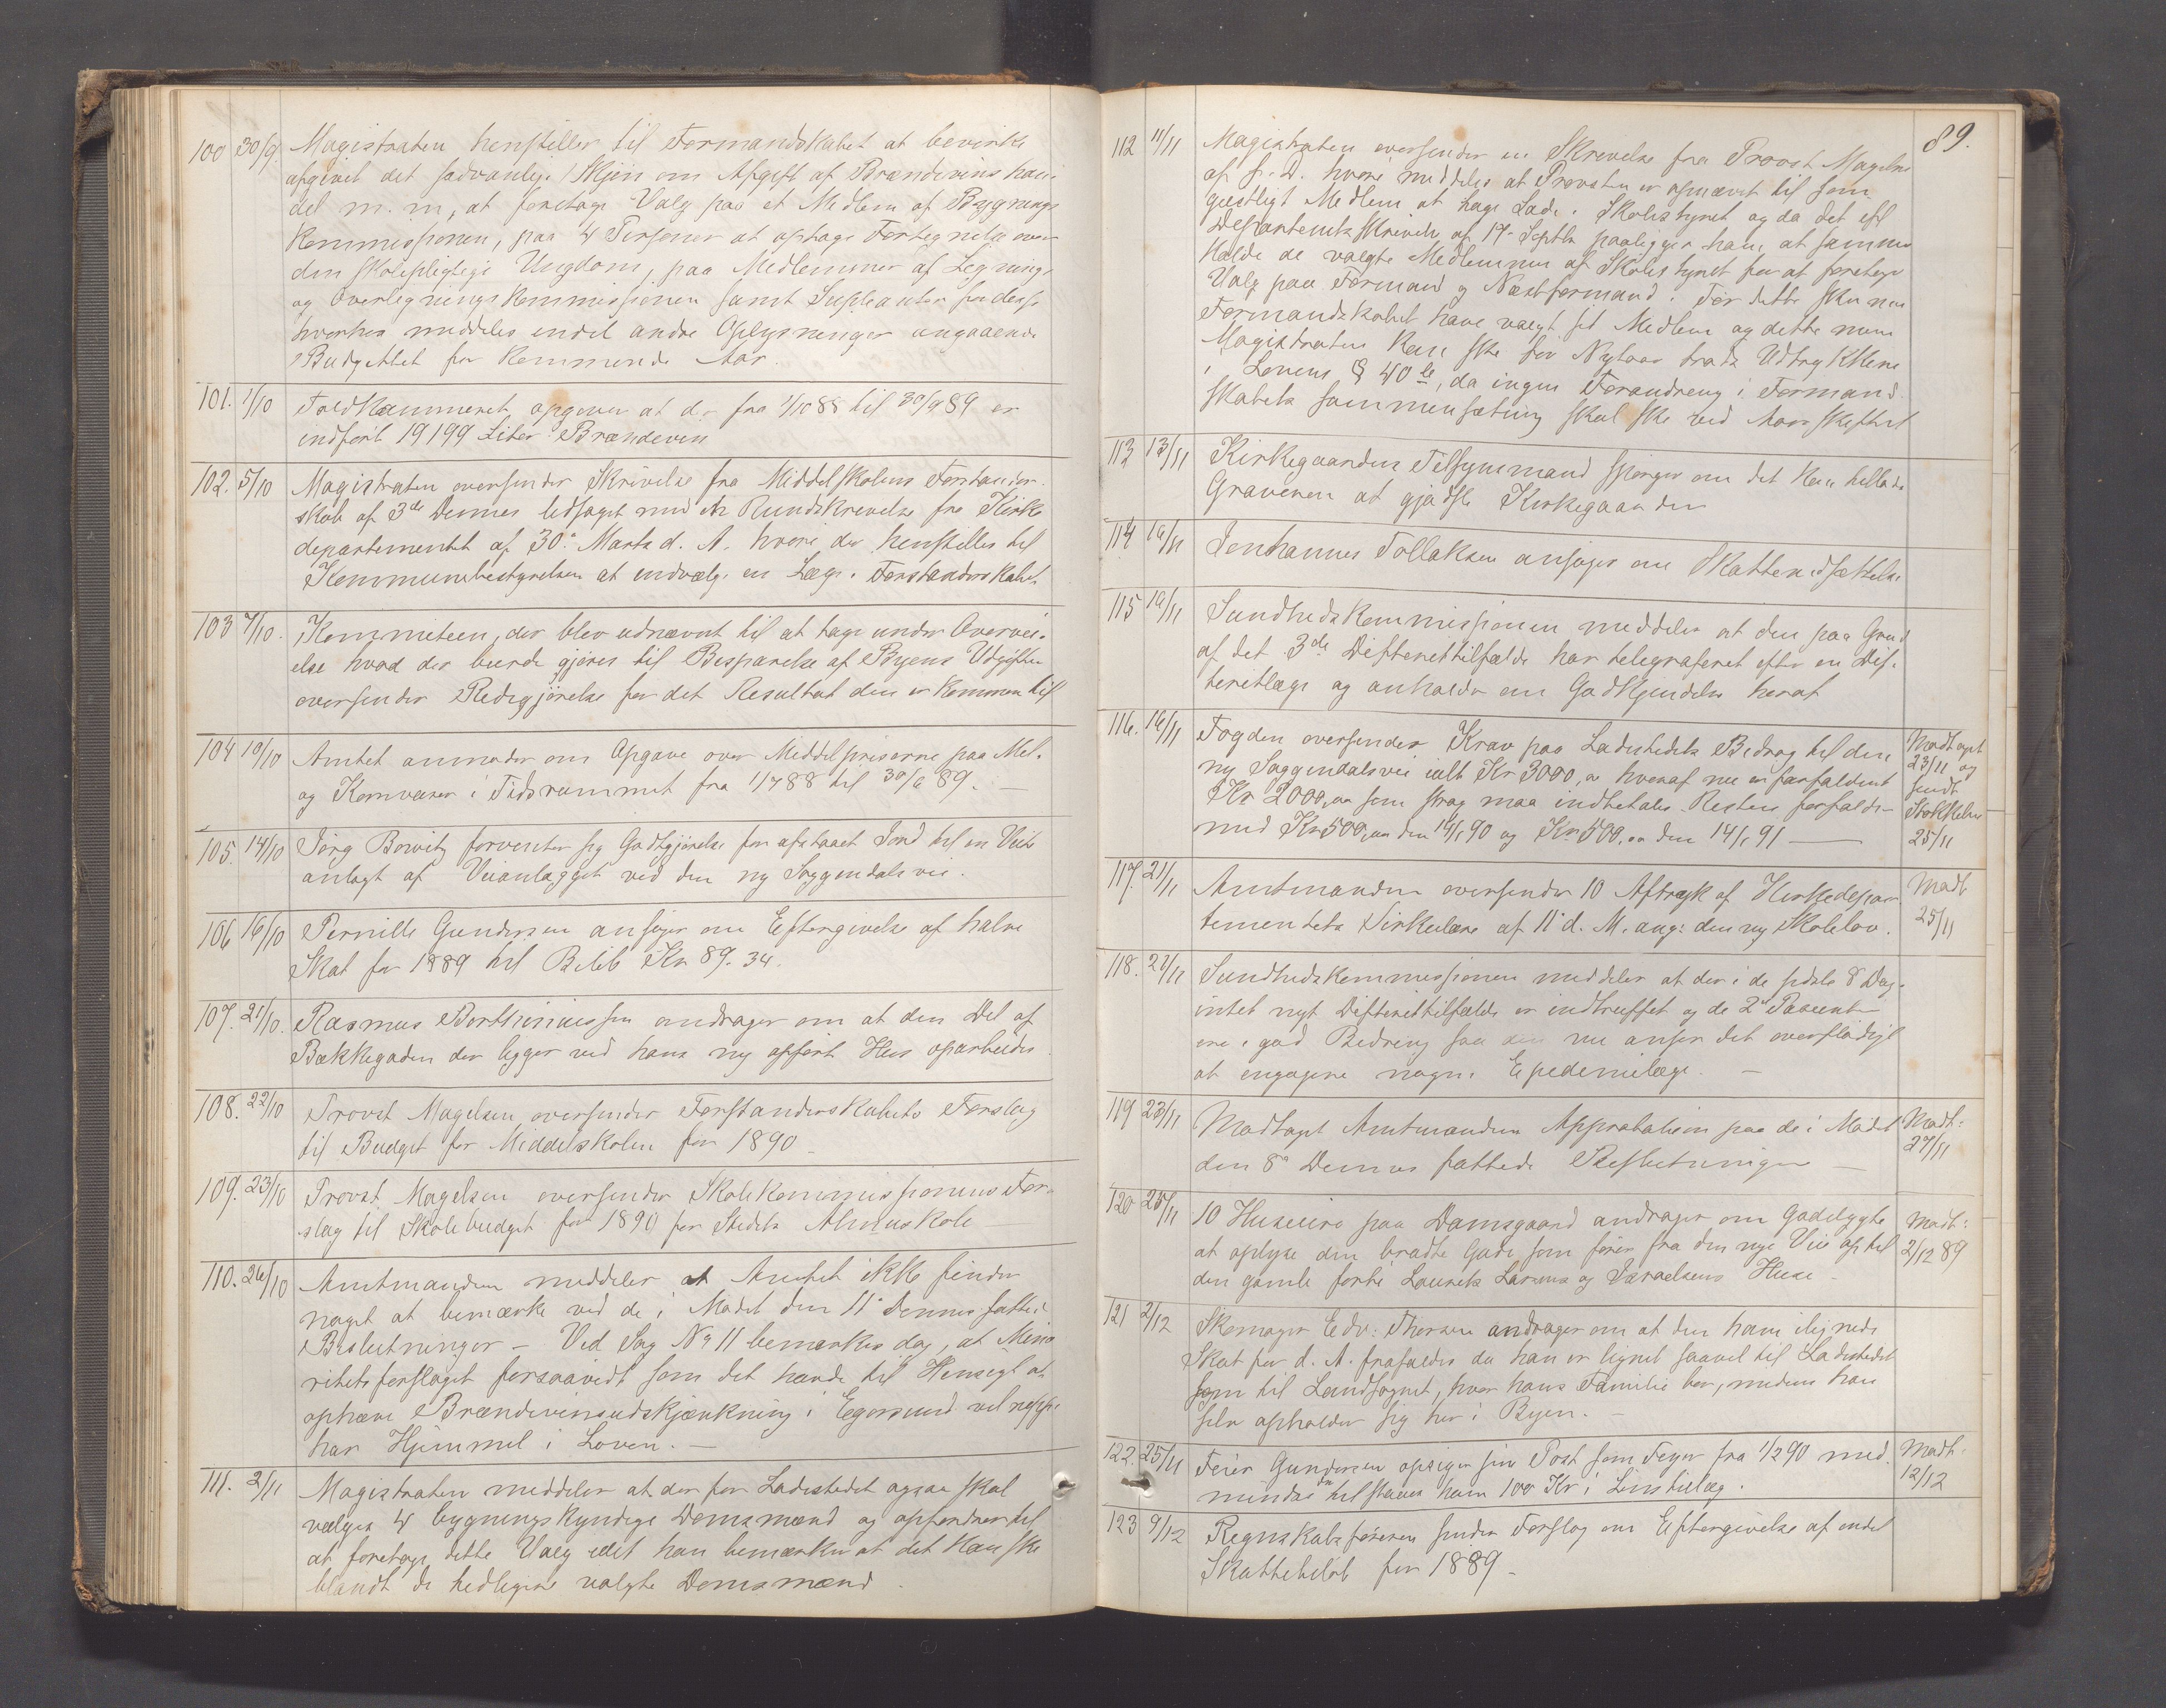 100 30/9 Magistraten henstiller til Formandskabet at bevirke
afgivet det sædvanlige Skjøn om Afgift af Brændevinshan-
del m. m., at foretage Valg paa et Medlem af Bygnings
Kommissionen, paa 4 Personer at optage Fortegnelse over
den skolepligtige Ungdom, paa Medlemmer af Legnings
og Overlegningskommissionen samt Supleanter for disse
hverhos meddeles endel andre Oplysninger angaaende
Budgettet for kommende Aar.
101. 1/10 Toldkammeret opgiver at der fra 1/10 88 til 30/9 89 er
indført 19199 Liter Brændevin
102. 5/10 Magistraten oversender Skrivelse fra Middelskolens Forstander-
skab af 3de Dennes ledsaget med en Rundskrivelse fra Kirke
departementet af 30. Marts d. A. hvori der henstilles til
Kommunebestyrelsen at indvælge en Læge i Forstanderskabet
103 7/10. Komiteen, der blev udnævnt til at tage under Overvei-
else hvad der burde gjøres til Besparelse af Byens Udgifter
oversender Redegjørelse for det Resultat den er kommen til
104 10/10 Amtet anmoder om Opgave over Middelpriserne paa Mel-
og Kornvarer i Tidsrummet fra 1/7 88 til 30/6 89. —
105. 14/10 Jörg Bowitz forventer sig Godtgjørelse for afstaaet Jord til en Vei
anlagt af Veianlægget ved den ny Soggendalsvei.
106 16/10 Pernille Gundersen ansøger om Eftergivelse af halve
Skat for 1889 til Beløb Kr 89.34.
107. 21/10. Rasmus Berthiniussen andrager om at den Del af
Bækkegaden der ligger ved hans ny opført Hus oparbeides
108. 22/10 Provst Magelsen oversender Forstanderskabets Forslag
til Budget for Middelskolen for 1890 –
109. 23/10 Provst Magelsen oversender Skolekommissionens For-
slag til Skolebudget for 1890 for Stedets Almuskole
110. 26/10 Amtmanden meddeler at Amtet ikke finder
noget at bemærke ved de i Mødet den 11' Dennes fattede
Beslutninger – Ved Sag No 11 bemærkes dog, at Mino
ritetsforslaget forsaavidt som det havde til Hensigt at
ophæve Brændevinsudskjænkning i Egersund vel neppe
har Hjemmel i Loven. —
111. 2/11 Magistraten meddeler at der for Ladestedet ogsaa skal
vælges 4 bygningskyndige Domsmænd og opfordrer til
at foretage dette Valg idet han bemærker at det kan ske
blandt de tidligere valgte Domsmænd.
89.
112 11/11 Magistraten oversender en Skrivelse fra Provst Magelsen
af s. D. hvori meddeles at Provsten er opnævnt til som
geistligt Medlem at tage Sæde i Skolestyret og da det efl
Departementsskrivelse af 17. Septbr paaligger ham at samme
kalde de valgte Medlemmer af Skolestyret for at foretage
Valg paa Formand og Næstformand. Før dette sker maa
Formandskabet have valgt sit Medlem og dette mener
Magistraten kan ske før Nytaar trods Udtrykkene
i Lovens § 40 , da ingen Forandring i Formand-
skabets sammensætning skal ske ved Aarsskiftet
113 13/11 Kirkegaardens Tilsynsmand spørger om det kan tillades
Graveren at gjødsle Kirkegaarden
114 16/11 Jonhannes Tollaksen ansøger om Skattenedsættelse
115 16/11 Sundhedskommissionen meddeler at den paa Grund
af det 3de Difterittilfælde har telegraferet efter en Dif-
teritlæge og anholder om Godkjendelse heraf
116. 16/11 Fogden oversender Krav paa Ladestedets Bidrag til den
ny Soggendalsvei ialt Kr 3000, hvoraf nu er forfaldent
Kr 2000, som strax maa indbetales. Resten forfalder
med Kr 500, den 14/1 90 og Kr 500, den 14/1 91 —
Modtaget
23/11 og
sendt
25/11
117. 21/11 Amtmanden oversender 10 Aftryk af Kirkedepar-
tementets Sirkulære af 11' d. M. ang: den ny Skolelov.
Modt
25/11
118. 22/11 Sundhedskommissionen meddeler at der i de sidste 8 Dage
intet nyt Difterittilfælde er indtruffet og de 2de Pasient-
er i god Bedring saa den nu anser det overflødigt
at engagere nogen Epedemilæge. —
119 23/11 Modtaget Amtmandens Approbation paa de i Mødet
den 8' Dennes fattede Beslutninger —
Modt:
27/11
120 25/11 10 Huseiere paa Damsgaard andrager om Gadelygte
at oplyse den bratte Gade som fører fra den nye Vei op til
den gamle forbi Lauritz Larsens og Israelsens Huse –
Modt:
2/12 89
121 2/12 Skomager Edv: Thorsen andrager om at den ham ilignede
Skat for d. A. frafaldes da han er lignet saavel til Ladestedet
som til Landsognet, hvor hans Familie bor, medens han
selv opholder sig her i Byen. –
122. 25/11 Feier Gundersen opsiger sin Post som Feyer fra 1/2 90 med
mindre der tilstaaes ham 100 Kr i Löntillæg.
Modt.
12/12
123 9/12 Regnskabsføreren sender Forslag om Eftergivelse af endel
Skattebeløb for 1889 –